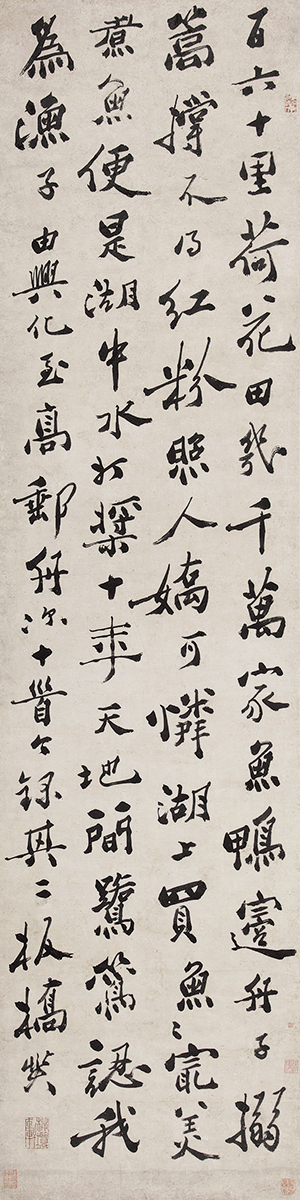 百六十里荷花田幾千萬家魚鴨邊舟子搦
篙撐不得紅粉照人嬌可憐湖上買魚〻最美
煮魚便是湖中水打槳十年天地間鷺鷥認我
為漁子由興化至高郵舟次十首今錄其二板橋燮